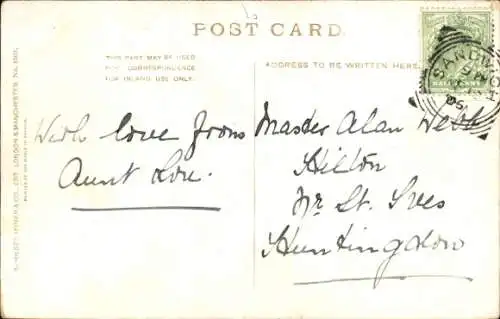 POST CARD.
THIS PART MAY BE USED
FOR CORRESPONDENCE
FOR INLAND USE ONLY.
ADDRESS TO BE WRITTEN HERE.
SANDWICH
05
HALFPENNY
With love from
Aunt Lou.
Master Alan Webb
Hilton
Nr St. Ives
Huntingdon
LONDON & MANCHESTER. No.